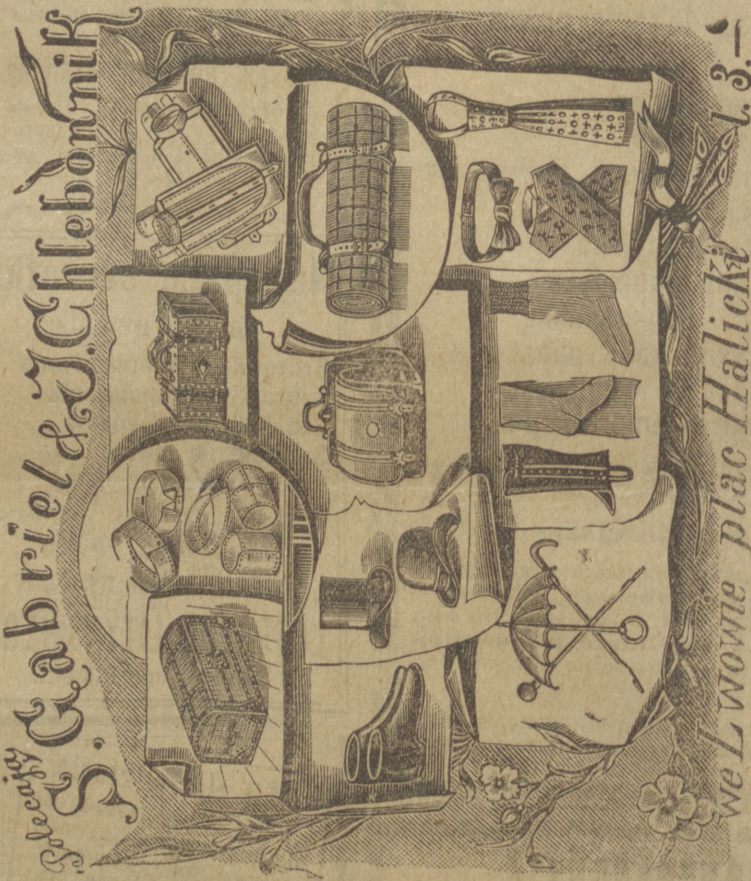 Polecają
S. Gabriel & J. Chlebownik
we Lwowie plac Halicki l. 3.–